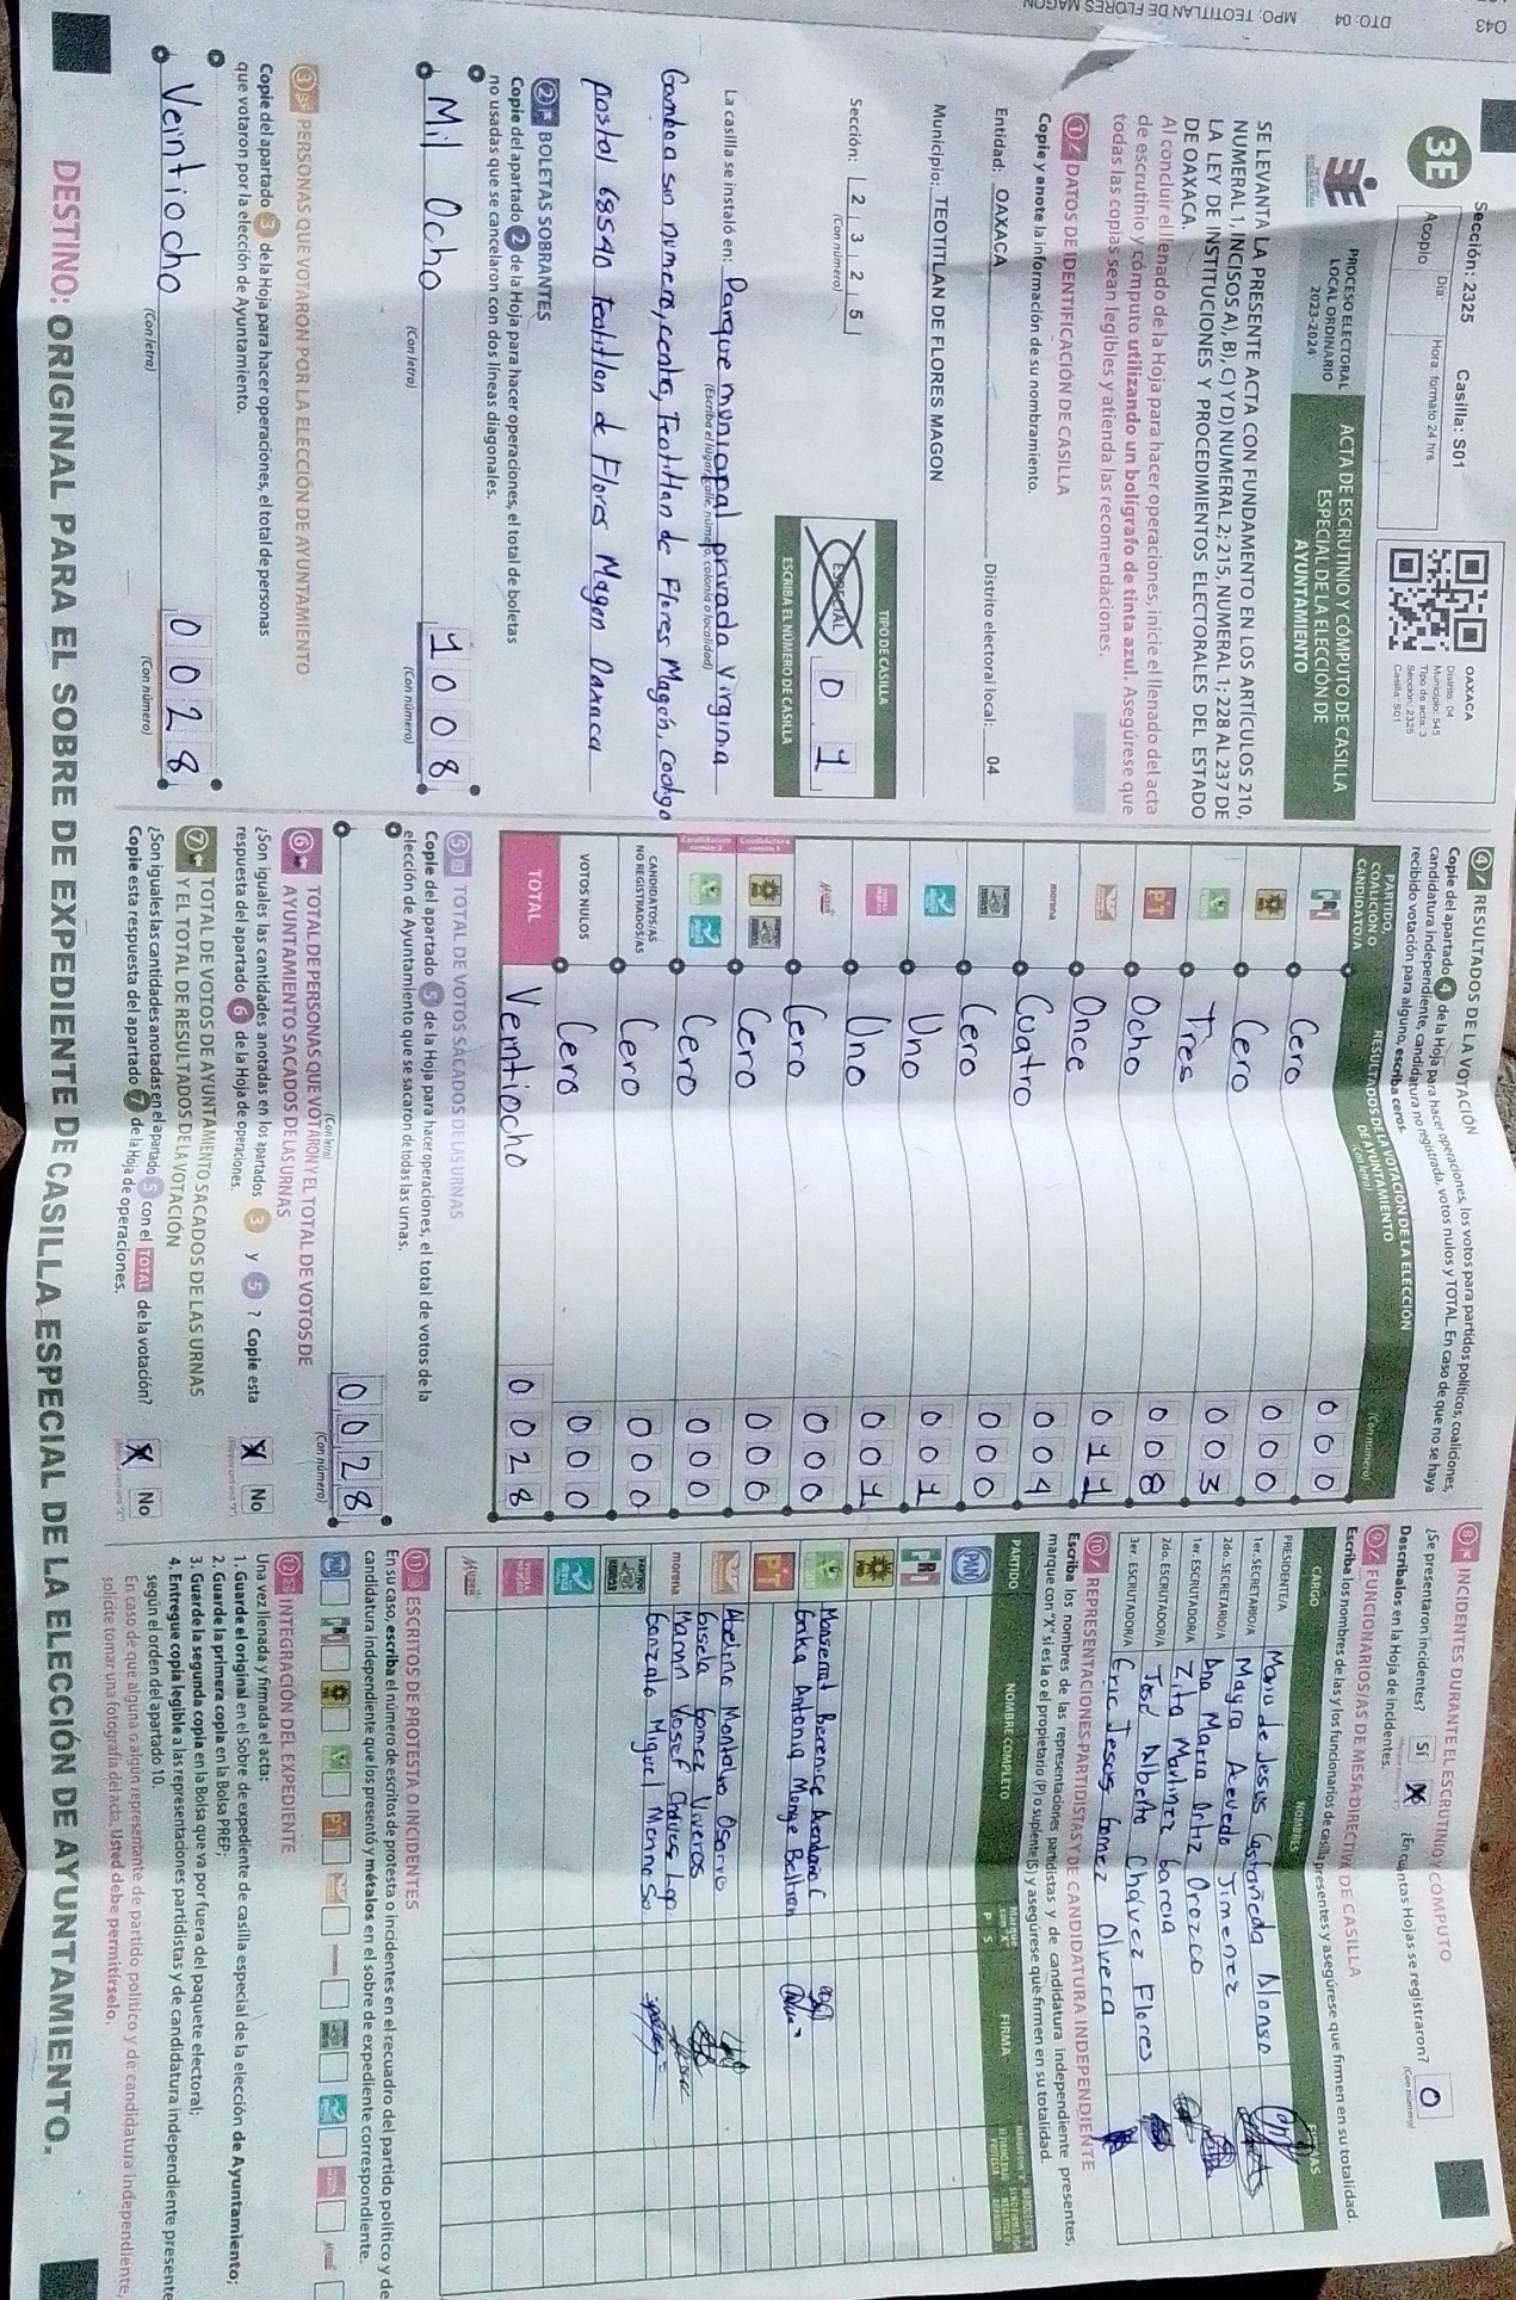 Sección: 2325 Casilla: S01
3E
Acopio
Día: Hora: formato 24 hrs
OAXACA
Distrito: 04
Municipio: 545
Tipo de acta: 3
Sección: 2325
Casilla: S01
PROCESO ELECTORAL
LOCAL ORDINARIO
2023-2024
ACTA DE ESCRUTINIO Y CÓMPUTO DE CASILLA
ESPECIAL DE LA ELECCIÓN DE
AYUNTAMIENTO
SE LEVANTA LA PRESENTE ACTA CON FUNDAMENTO EN LOS ARTÍCULOS 210,
NUMERAL 1, INCISOS A), B), C) Y D) NUMERAL 2; 215, NUMERAL 1; 228 AL 237 DE
LA LEY DE INSTITUCIONES Y PROCEDIMIENTOS ELECTORALES DEL ESTADO
DE OAXACA.
Al concluir el llenado de la Hoja para hacer operaciones, inicie el llenado del acta
de escrutinio y cómputo utilizando un bolígrafo de tinta azul. Asegúrese que
todas las copias sean legibles y atienda las recomendaciones.
1 DATOS DE IDENTIFICACIÓN DE CASILLA
Copie y anote la información de su nombramiento.
Entidad: OAXACA Distrito electoral local: 04
Municipio: TEOTITLAN DE FLORES MAGON
Sección: 2 3 2 5
(Con número)
TIPO DE CASILLA
ESPECIAL 0 1
ESCRIBA EL NÚMERO DE CASILLA
La casilla se instaló en: Parque municipal privada Virginia
(Escriba el lugar, calle, número, colonia o localidad)
Gamboa sin numero, centro, Teotitlan de Flores Magón, codigo
postal 68540 teotitlan de Flores Magon Oaxaca
2 BOLETAS SOBRANTES
Copie del apartado 2 de la Hoja para hacer operaciones, el total de boletas
no usadas que se cancelaron con dos líneas diagonales.
Mil Ocho 1 0 0 8
(Con letra) (Con número)
3 PERSONAS QUE VOTARON POR LA ELECCIÓN DE AYUNTAMIENTO
Copie del apartado 3 de la Hoja para hacer operaciones, el total de personas
que votaron por la elección de Ayuntamiento.
Veintiocho 0 0 2 8
(Con letra) (Con número)
4 RESULTADOS DE LA VOTACIÓN
Copie del apartado 4 de la Hoja para hacer operaciones, los votos para partidos políticos, coaliciones,
candidatura independiente, candidatura no registrada, votos nulos y TOTAL. En caso de que no se haya
recibido votación para alguno, escriba ceros.
PARTIDO,
COALICIÓN O
CANDIDATO/A
RESULTADOS DE LA VOTACIÓN DE LA ELECCIÓN
DE AYUNTAMIENTO
(Con letra) (Con número)
PRI Cero 0 0 0
Cero 0 0 0
Tres 0 0 3
PT Ocho 0 0 8
Once 0 1 1
morena Cuatro 0 0 4
Cero 0 0 0
Uno 0 0 1
Uno 0 0 1
Cero 0 0 0
Cero 0 0 0
Cero 0 0 0
CANDIDATOS/AS
NO REGISTRADOS/AS Cero 0 0 0
VOTOS NULOS Cero 0 0 0
TOTAL Veintiocho 0 0 2 8
5 TOTAL DE VOTOS SACADOS DE LAS URNAS
Copie del apartado 5 de la Hoja para hacer operaciones, el total de votos de la
elección de Ayuntamiento que se sacaron de todas las urnas.
0 0 2 8
(Con letra) (Con número)
6 TOTAL DE PERSONAS QUE VOTARON Y EL TOTAL DE VOTOS DE
AYUNTAMIENTO SACADOS DE LAS URNAS
¿Son iguales las cantidades anotadas en los apartados 3 y 5 ? Copie esta
respuesta del apartado 6 de la Hoja de operaciones.
X No
7 TOTAL DE VOTOS DE AYUNTAMIENTO SACADOS DE LAS URNAS
Y EL TOTAL DE RESULTADOS DE LA VOTACIÓN
¿Son iguales las cantidades anotadas en el apartado 5 con el TOTAL de la votación?
Copie esta respuesta del apartado 7 de la Hoja de operaciones.
X No
8 INCIDENTES DURANTE EL ESCRUTINIO Y CÓMPUTO
¿Se presentaron incidentes? Sí X ¿En cuántas Hojas se registraron? 0
(Con número)
Descríbalos en la Hoja de incidentes.
9 FUNCIONARIOS/AS DE MESA DIRECTIVA DE CASILLA
Escriba los nombres de las y los funcionarios de casilla presentes y asegúrese que firmen en su totalidad.
CARGO NOMBRES
PRESIDENTE/A Maria de Jesus Castañeda Alonso
1er. SECRETARIO/A Mayra Acevedo Jimenez
2do. SECRETARIO/A Ana Maria Ortiz Orozco
1er. ESCRUTADOR/A Zita Martinez Garcia
2do. ESCRUTADOR/A José Alberto Chávez Flores
3er. ESCRUTADOR/A Eric Jesus Gomez Olvera
10 REPRESENTACIONES PARTIDISTAS Y DE CANDIDATURA INDEPENDIENTE
Escriba los nombres de las representaciones partidistas y de candidatura independiente presentes,
marque con "X" si es la o el propietario (P) o suplente (S) y asegúrese que firmen en su totalidad.
PARTIDO NOMBRE COMPLETO Marque con "X" P S FIRMA
PAN
PRI
Monserrat Berenice Avendaño C
Erika Antonia Monge Beltran
PT
Abelino Montalvo Osorio
Gisela Gomez Viveros
morena
Gonzalo Miguel
11 ESCRITOS DE PROTESTA O INCIDENTES
En su caso, escriba el número de escritos de protesta o incidentes en el recuadro del partido político y de
candidatura independiente que los presentó y métalos en el sobre de expediente correspondiente.
12 INTEGRACIÓN DEL EXPEDIENTE
Una vez llenada y firmada el acta:
1. Guarde el original en el Sobre de expediente de casilla especial de la elección de Ayuntamiento;
2. Guarde la primera copia en la Bolsa PREP;
3. Guarde la segunda copia en la Bolsa que va por fuera del paquete electoral;
4. Entregue copia legible a las representaciones partidistas y de candidatura independiente presente
según el orden del apartado 10.
En caso de que alguna o algún representante de partido político y de candidatura independiente,
solicite tomar una fotografía del acta, Usted debe permitírselo.
DESTINO: ORIGINAL PARA EL SOBRE DE EXPEDIENTE DE CASILLA ESPECIAL DE LA ELECCIÓN DE AYUNTAMIENTO.
DTO: 04 MPO: TEOTITLAN DE FLORES MAGON